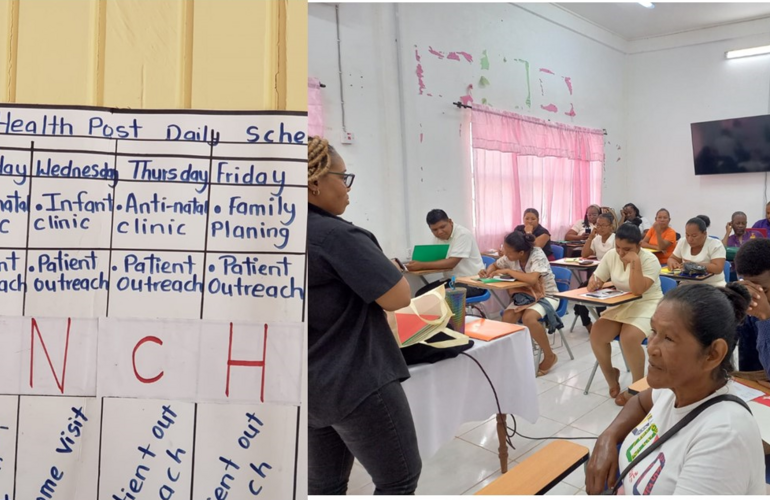 Health Post Daily Sche
day Wednesday Thursday Friday
natal • Infant • Anti-natal • Family
c clinic clinic Planing
ent • Patient • Patient • Patient
each outreach outreach Outreach
N C H
me visit
atient out
each
ent out
ch